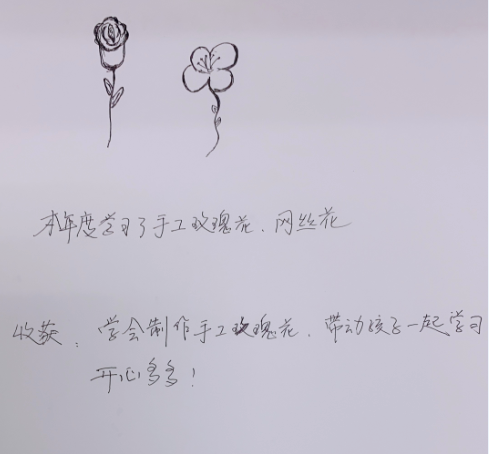 本年度学习了手工玫瑰花、网丝花
收获：学会制作手工玫瑰花，带动孩子一起学习
开心多多！